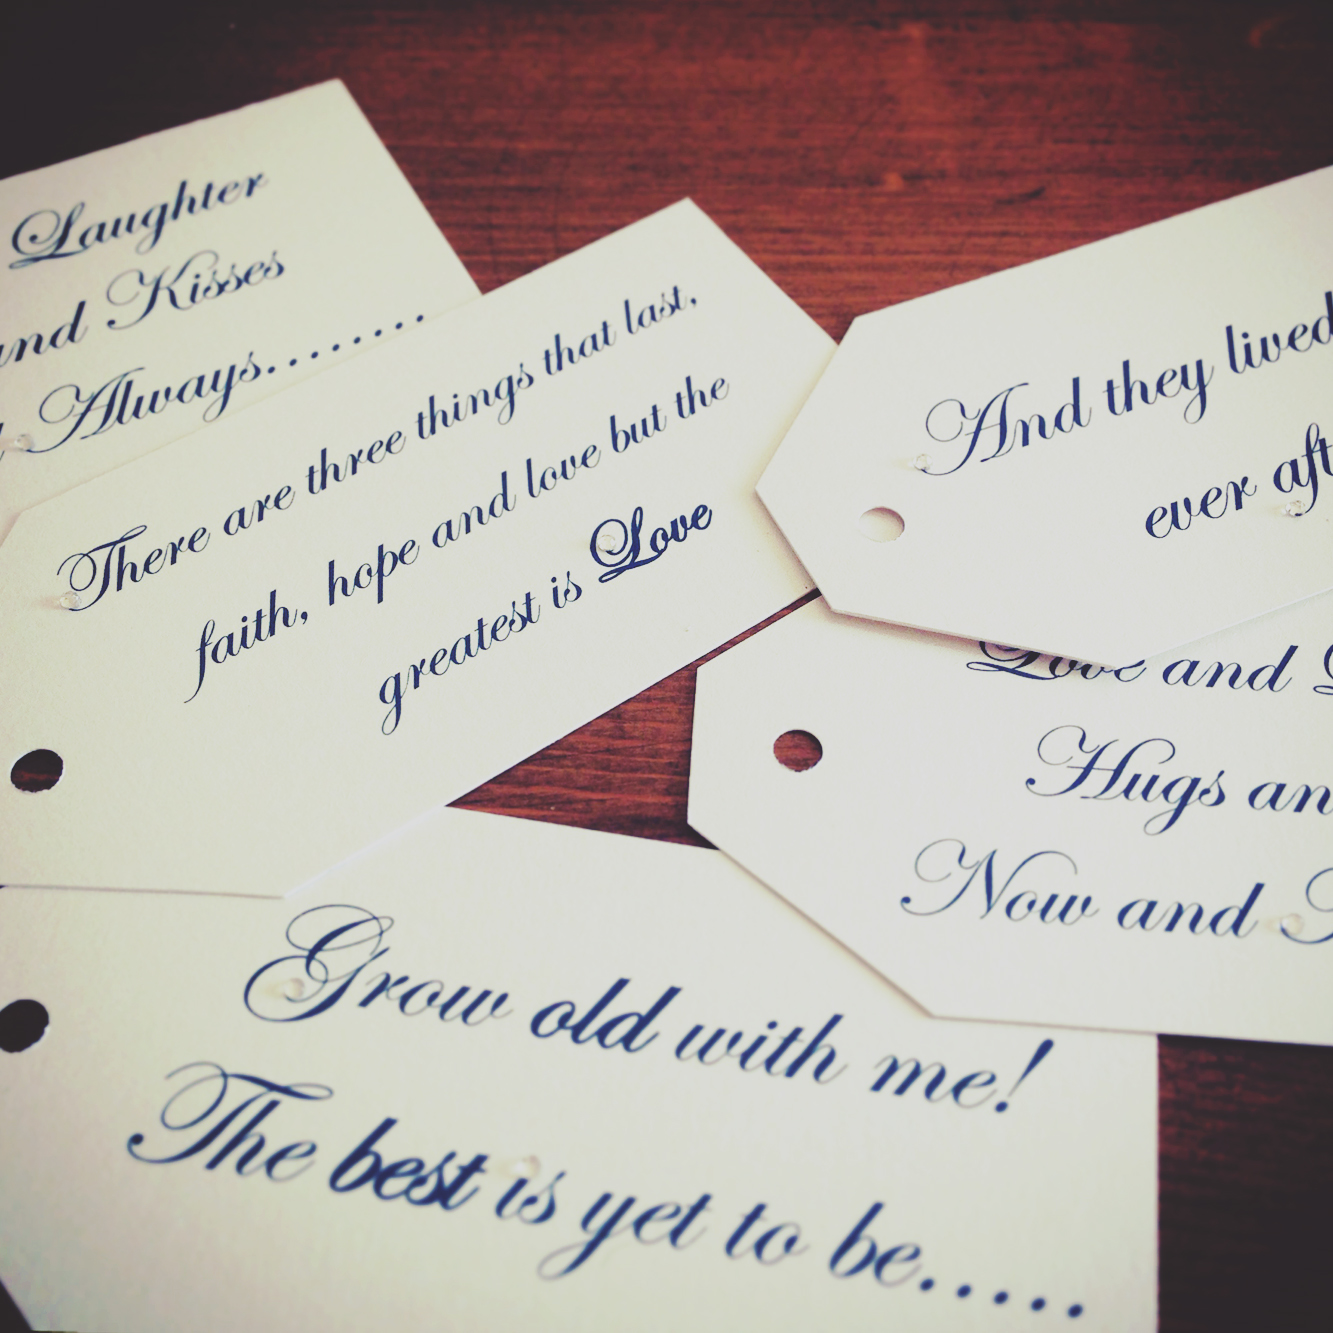 Laughter
and Kisses
Always........
There are three things that last,
faith, hope and love but the
greatest is Love
And they lived
ever
Love and
Hugs
Now and
Grow old with me!
The best is yet to be.....